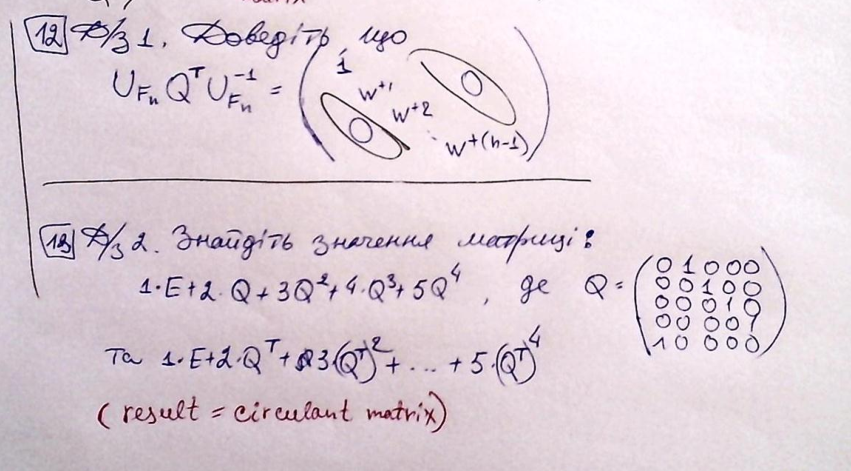 12 Д/З 1. Доведіть, що
U_{F_n} Q^T U_{F_n}^{-1} = ( 1 w^{+1} w^{+2} ⋱ w^{+(n-1)} 0 0 )
13 Д/З 2. Знайдіть значення матриці:
1·E+2·Q+3Q^2+4·Q^3+5Q^4, де Q=
0 1 0 0 0
0 0 1 0 0
0 0 0 1 0
0 0 0 0 1
1 0 0 0 0
та 1·E+2·Q^T+3(Q^T)^2+...+5·(Q^T)^4
(result = circulant matrix)